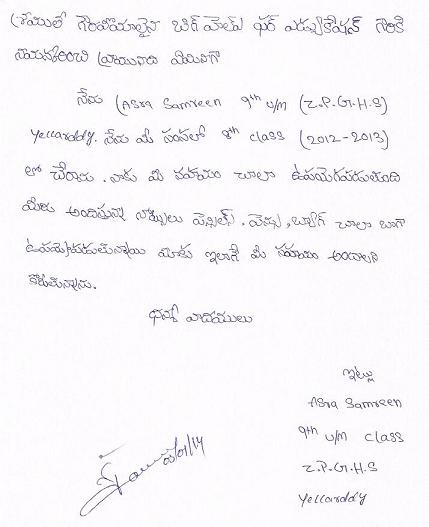 శ్రీయుతో గౌరవనీయులైన బిగ్ హెల్ప్ ఫర్ ఎడ్యుకేషన్ గారికి
నమస్కరించి వ్రాయునది ఏమనగా
నేను (Asra Samreen 9th u/m (Z.P.G.H.S)
Yellarddy. నేను మీ సంస్థలో 8th class (2012-2013)
లో చేరాను. నాకు మీ సహాయం చాలా ఉపయోగపడుతుంది
మీరు అందిస్తున్న నోట్బుక్కులు పెన్సిల్స్, పెన్ను, బ్యాగ్ చాలా బాగా
ఉపయోగపడుతున్నాయి మాకు ఇలాగే మీ సహాయం అందాలని
కోరుతున్నాను.
ధన్య వాదములు
ఇట్లు
Asra Samreen
9th u/m class
Z.P.G.H.S
Yellarddy